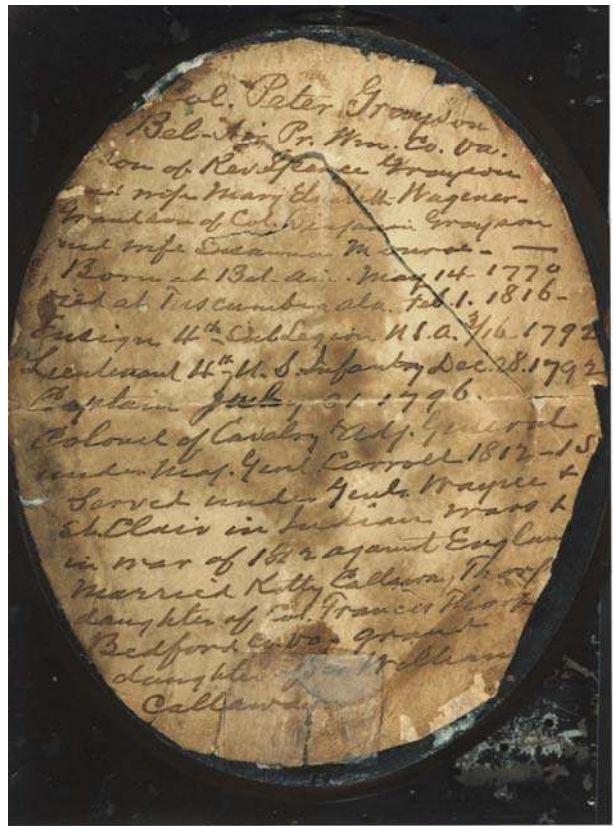 Col. Peter Grayson
Bel-Air Pr. Wm. Co. Va.
Son of Rev Spence Grayson
and wife Mary Elizabeth Wagener-
Grandson of Col. Benjamin Grayson
and wife Susanna Monroe-
Born at Bel-air. May 14. 1770
Died at Tuscumbia ala. Feb. 1. 1816-
Ensign 4th Sub Legion U.S.A. 3/16-1792
Lieutenant 4th U.S Infantry Dec. 28. 1792
Captain July 1796.
Colonel of Cavalry & Adj. General
under Maj. Genl. Carroll 1812-15
Served under Genls. Wayne &
St. Clair in Indian wars &
in war of 1812 against England
Married Kitty Callaway
daughter of Col. Francis
Bedford Co. Va. grand
daughter William
Callaway